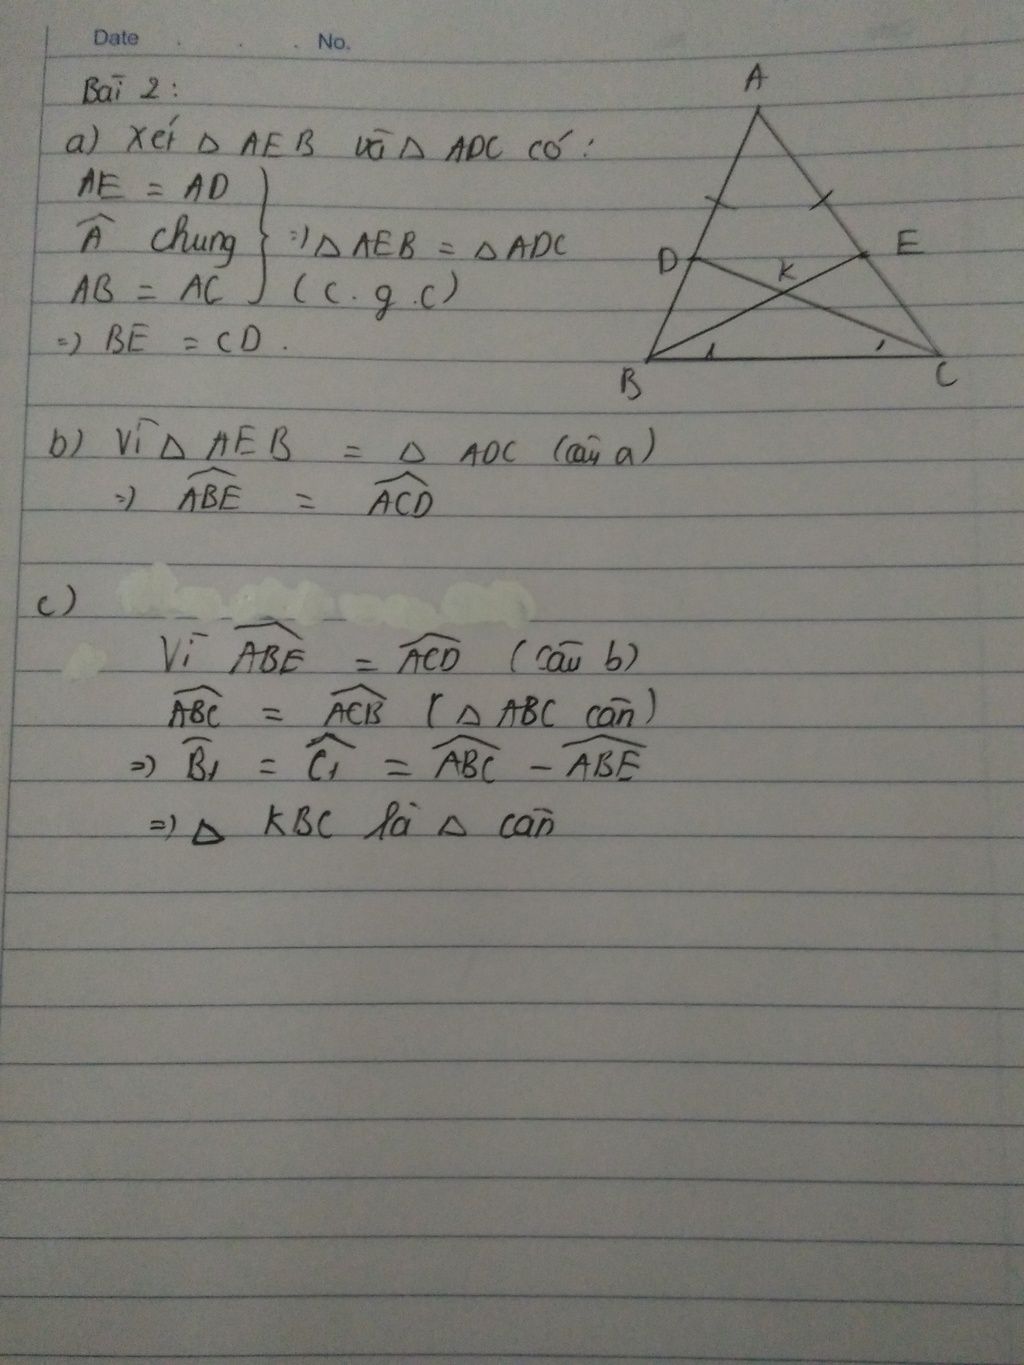 Date . . . No.
Bài 2:
a) Xét △ AEB và △ ADC có:
AE = AD
Â chung => △ AEB = △ ADC
AB = AC (c.g.c)
=> BE = CD.
b) Vì △ AEB = △ ADC (câu a)
=> ABE = ACD
c)
Vì ABE = ACD (câu b)
ABC = ACB (△ ABC cân)
=> B1 = C1 = ABC - ABE
=> △ KBC là △ cân
A
D
E
K
B
C